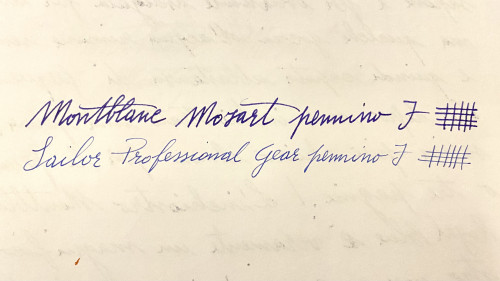 Montblanc Mozart pennino F
Sailor Professional Gear pennino F